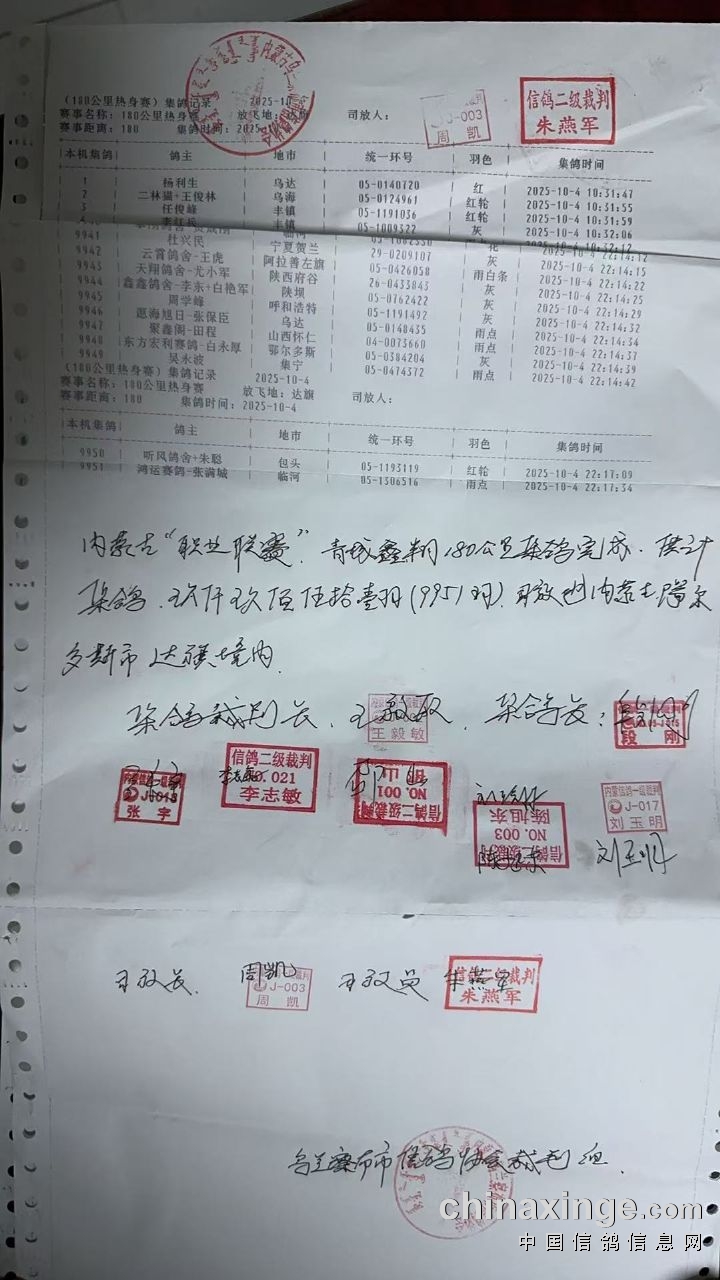 (180公里热身赛) 集鸽记录 2025-10
赛事名称: 180公里热身赛 放飞地: 达旗 司放人:
赛事距离: 180 集鸽时间: 2025-1
J-003
周 凯
信鸽二级裁判
朱燕军
本机集鸽| 鸽主 | 地市 | 统一环号 | 羽色 | 集鸽时间
1 | 杨利生 | 乌达 | 05-0140720 | 红 | 2025-10-4 10:31:47
2 | 二林猫+王俊林 | 乌海 | 05-0124961 | 红轮 | 2025-10-4 10:31:55
3 | 任俊峰 | 丰镇 | 05-1191036 | 红轮 | 2025-10-4 10:31:59
李红兵 | 丰镇 | 05-1009322 | 灰 | 2025-10-4 10:32:06
9941 | 杜兴民 | 宁夏贺兰 | 29-0209107 | 灰 | 2025-10-4 22:14:12
9942 | 云霄鸽舍-王虎 | 阿拉善左旗 | 05-0426058 | 雨白条 | 2025-10-4 22:14:15
9943 | 天翔鸽舍-尤小军 | 陕西府谷 | 26-0433843 | 灰 | 2025-10-4 22:14:22
9944 | 鑫鑫鸽舍-李东+白艳军 | 陕坝 | 05-0762422 | 灰 | 2025-10-4 22:14:25
9945 | 周学峰 | 呼和浩特 | 05-1191492 | 灰 | 2025-10-4 22:14:29
9946 | 逛海旭日-张保臣 | 乌达 | 05-0148435 | 雨点 | 2025-10-4 22:14:32
9947 | 聚鑫阁-田程 | 山西怀仁 | 04-0073660 | 雨点 | 2025-10-4 22:14:34
9948 | 东方宏利赛鸽-白永厚 | 鄂尔多斯 | 05-0384204 | 灰 | 2025-10-4 22:14:39
9949 | 吴永波 | 集宁 | 05-0474372 | 雨点 | 2025-10-4 22:14:42
(180公里热身赛) 集鸽记录 2025-10-4
赛事名称: 180公里热身赛 放飞地: 达旗 司放人:
赛事距离: 180 集鸽时间: 2025-10-4
本机集鸽| 鸽主 | 地市 | 统一环号 | 羽色 | 集鸽时间
9950 | 听风鸽舍+朱聪 | 包头 | 05-1193119 | 红轮 | 2025-10-4 22:17:09
9951 | 鸿运赛鸽-张满城 | 临河 | 05-1306516 | 雨点 | 2025-10-4 22:17:34
内蒙古“职业联赛”青城鑫翔180公里集鸽完成.共计
集鸽.玖仟玖佰伍拾壹羽(9951羽).司放地内蒙古鄂尔
多斯市达旗境内.
集鸽裁判长. 王毅敏. 集鸽员:
王毅敏
段 刚
J-015
张 宇
信鸽二级裁判
NO.021
李志敏
信鸽二级裁判
NO.001
信鸽二级裁判
NO.003
陈旭东
陈旭东
内蒙信鸽一级裁判
J-017
刘玉明
刘玉明
司放长. 周凯 司放员 朱燕军
J-003
周 凯
信鸽二级裁判
朱燕军
乌兰察布市信鸽协会裁判组.
chinaxinge.com
中国信鸽信息网